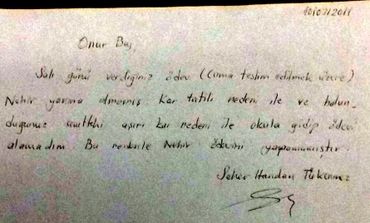 10/03/2011
Onur Bey,
Salı günü verdiğiniz ödev (Cuma teslim edilmek üzere)
Nehir yanına almamış Kar tatili nedeni ile ve bulun
duğumuz semtteki aşırı kar nedeni ile okula gidip ödevi
alamadım Bu nedenle Nehir ödevini yapamamıştır.
Seher Handan Tükenmez